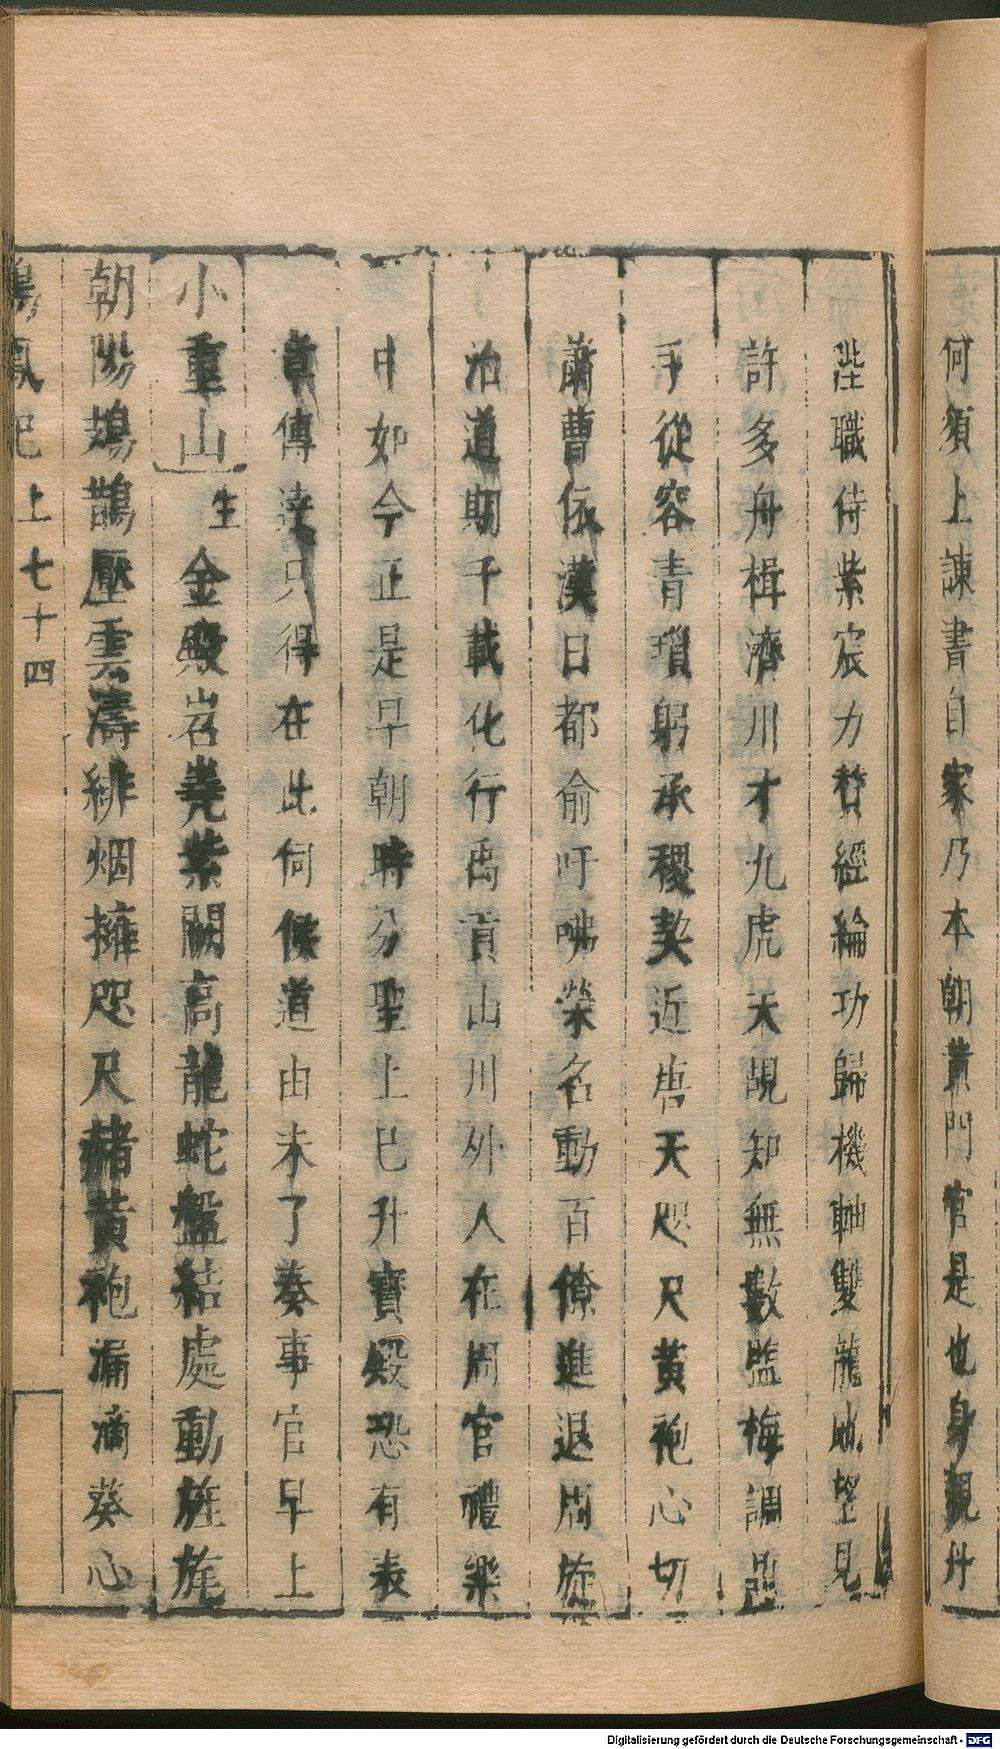 何須上諌書自家乃本朝黄門官是也身親丹
陛職侍紫宸力賛經綸功歸機軸雙龍地望見
許多舟楫濟川才九虎天覘知無數監梅調鼎
手從容青瑣躬承稷契近唐天咫尺黄袍心切
蕭曹依漢日都俞吁咈榮名動百僚進退周旋
治道期千載化行禹貢山川外人在周官禮樂
中如今正是早朝時分聖上已升寶殿恐有表
章傳達只得在此伺候道由未了奏事官早上
小重山 生 金殿岧嶤紫闕高龍蛇盤結處動旌旄
朝陽鳷鵲壓雲濤緋烟擁咫尺赭黄袍漏滴葵心
鳳 上 七十四
Digitalisierung gefördert durch die Deutsche Forschungsgemeinschaft - DFG